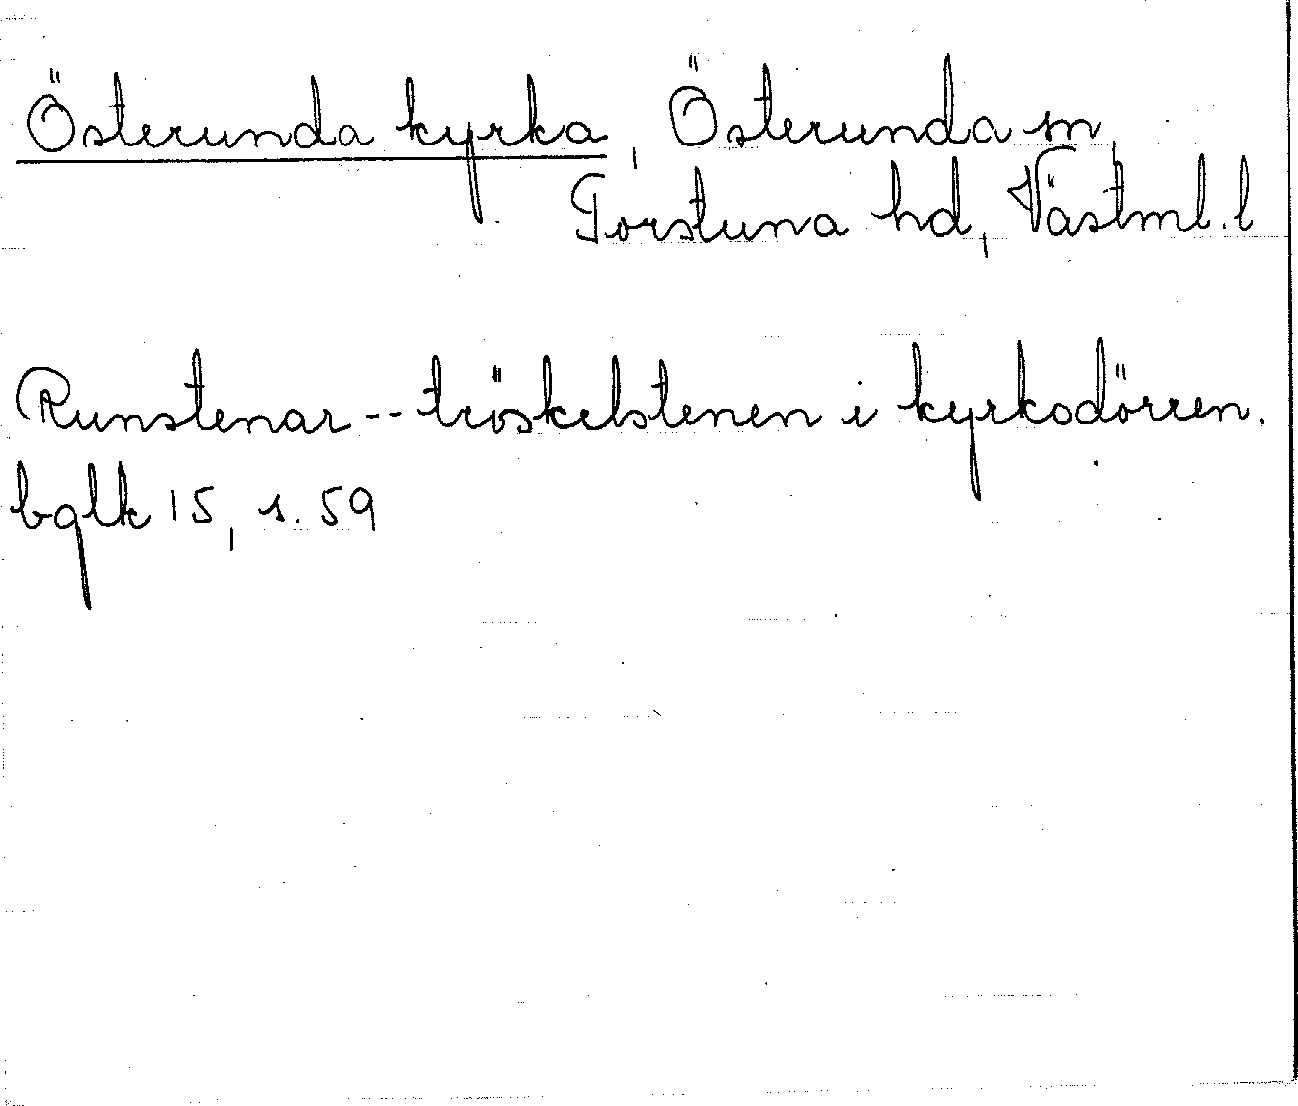 Österunda kyrka, Österunda sn,
Torstuna hd, Västml. l
Runstenar -- tröskelstenen i kyrkodörren.
bqlk 15, s. 59